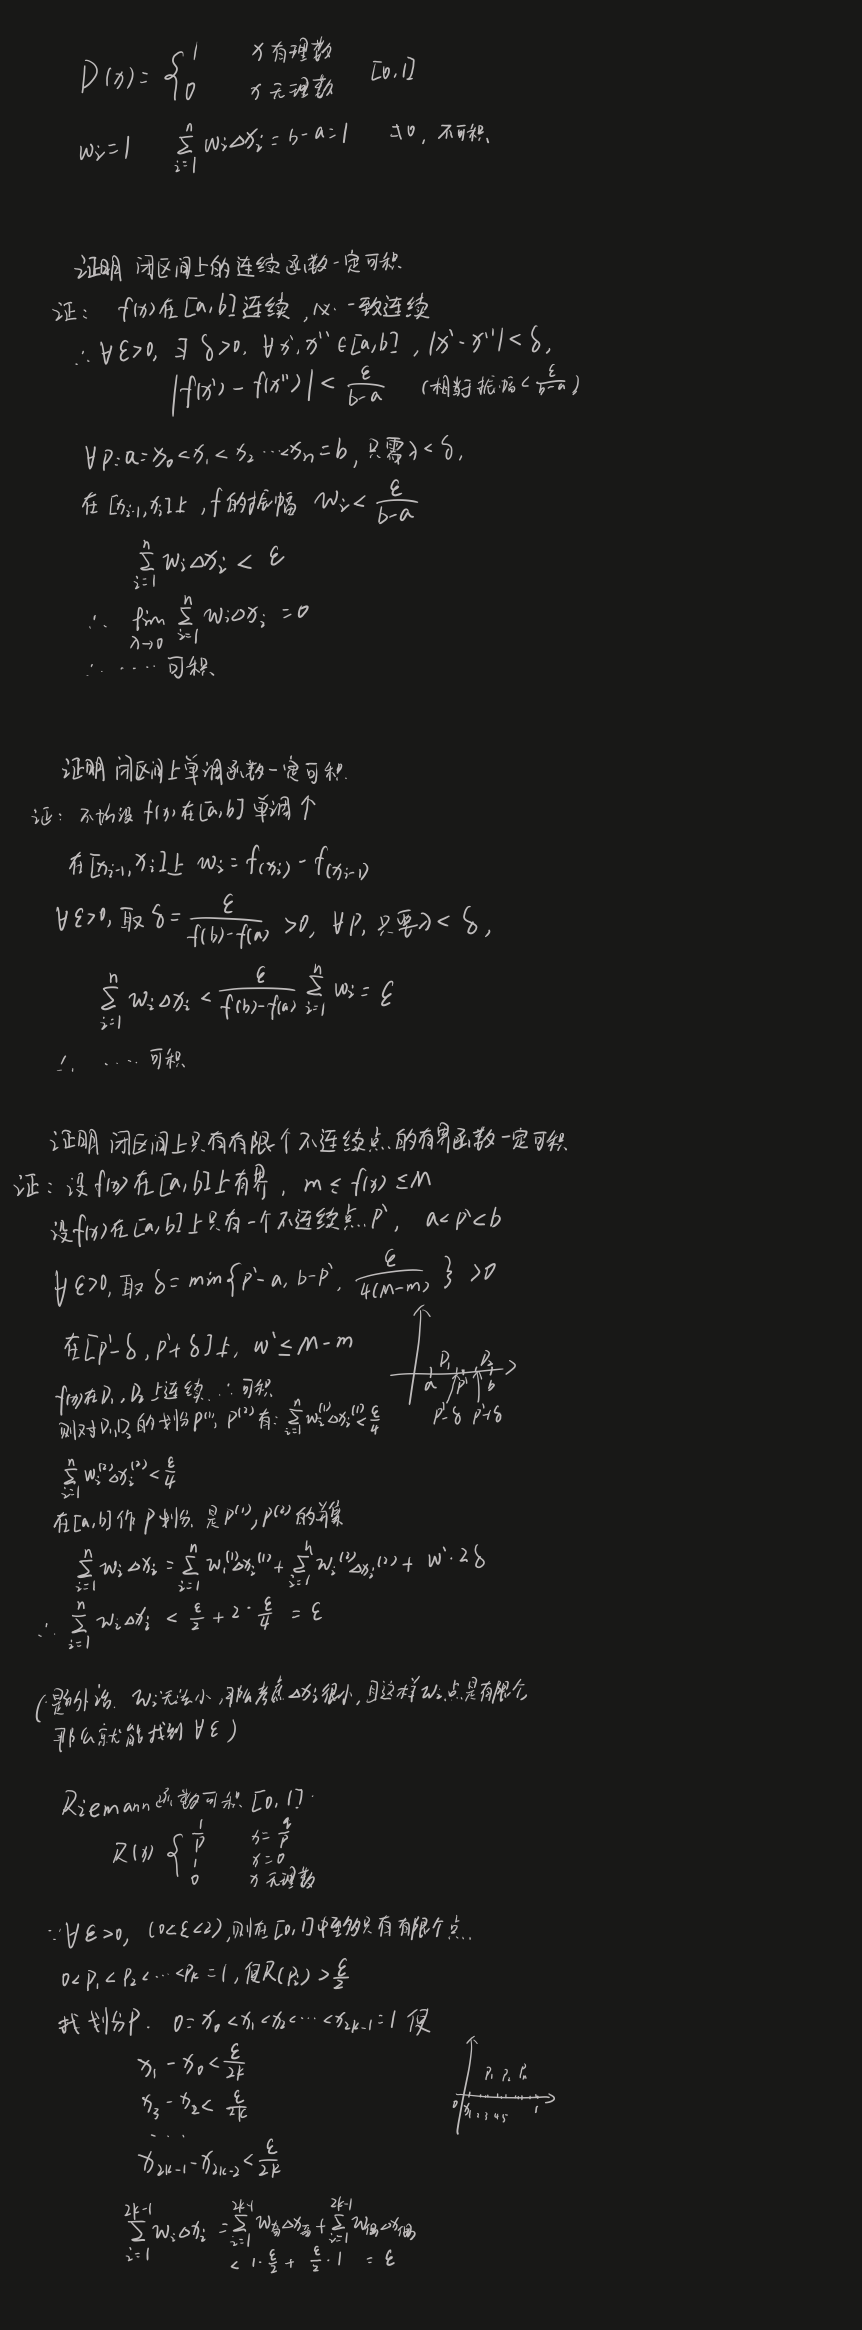 D(x) = { 1 x有理数
0 x无理数 [0,1]
wi=1 ∑_{i=1}^{n} wiΔxi = b-a=1 ≠0, 不可积
证明 闭区间上的连续函数一定可积
证: f(x)在[a,b]连续, 一致连续
∴ ∀ε>0, ∃δ>0, ∀x',x''∈[a,b], |x'-x''|<δ,
|f(x')-f(x'')| < ε/(b-a) (相当于振幅<ε/(b-a))
∀P: a=x0<x1<x2…<xn=b, 只需λ<δ,
在[xi-1,xi]上, f的振幅 wi < ε/(b-a)
∑_{i=1}^{n} wiΔxi < ε
∴ lim_{λ→0} ∑_{i=1}^{n} wiΔxi = 0
∴ …… 可积
证明 闭区间上单调函数一定可积.
证: 不妨设 f(x)在[a,b]单调↑
在[xi-1,xi]上 wi = f(xi) - f(xi-1)
∀ε>0, 取 δ = ε/(f(b)-f(a)) >0, ∀P, 只要λ<δ,
∑_{i=1}^{n} wiΔxi < ε/(f(b)-f(a)) ∑_{i=1}^{n} wi = ε
∴ …… 可积
证明 闭区间上只有有限个不连续点的有界函数一定可积
证: 设f(x)在[a,b]上有界, m≤f(x)≤M
设f(x)在[a,b]上只有一个不连续点P', a<P'<b
∀ε>0, 取 δ = min{P'-a, b-P', ε/(4(M-m))} >0
在[P'-δ, P'+δ]上, w'≤M-m
D1 D2
a P' b
P'-δ P'+δ
f(x)在D1, D2上连续 ∴可积
则对D1D2的划分P(1), P(2)有: ∑_{i=1}^{n} wi(1)Δxi(1) < ε/4
∑_{i=1}^{n} wi(2)Δxi(2) < ε/4
在[a,b]作P划分 是P(1), P(2)的并集
∑_{i=1}^{n} wiΔxi = ∑_{i=1}^{n} wi(1)Δxi(1) + ∑_{i=1}^{n} wi(2)Δxi(2) + w'·2δ
∴ ∑_{i=1}^{n} wiΔxi < ε/2 + 2·ε/4 = ε
(题外话. wi无法小, 那么考虑Δxi很小, 且这样wi点是有限个
那么就能找到∀ε)
Riemann函数可积 [0,1].
R(x) { 1/p x=q/p
1 x=0
0 x无理数
∵∀ε>0, (0<ε<2), 则在[0,1]中至多只有有限个点
0<P1<P2<…<Pk=1, 使R(Pi)>ε/2
找划分P. 0=x0<x1<x2<…<x2k-1=1 使
x1-x0<ε/2k
x3-x2<ε/2k
…
x2k-1-x2k-2<ε/2k
P1 P2
0 x1 2 3 4 5 1
∑_{i=1}^{2k-1} wiΔxi = ∑_{i=1}^{2k-1} w奇Δx奇 + ∑_{i=1}^{2k-1} w偶Δx偶
< 1·ε/2 + ε/2·1 = ε